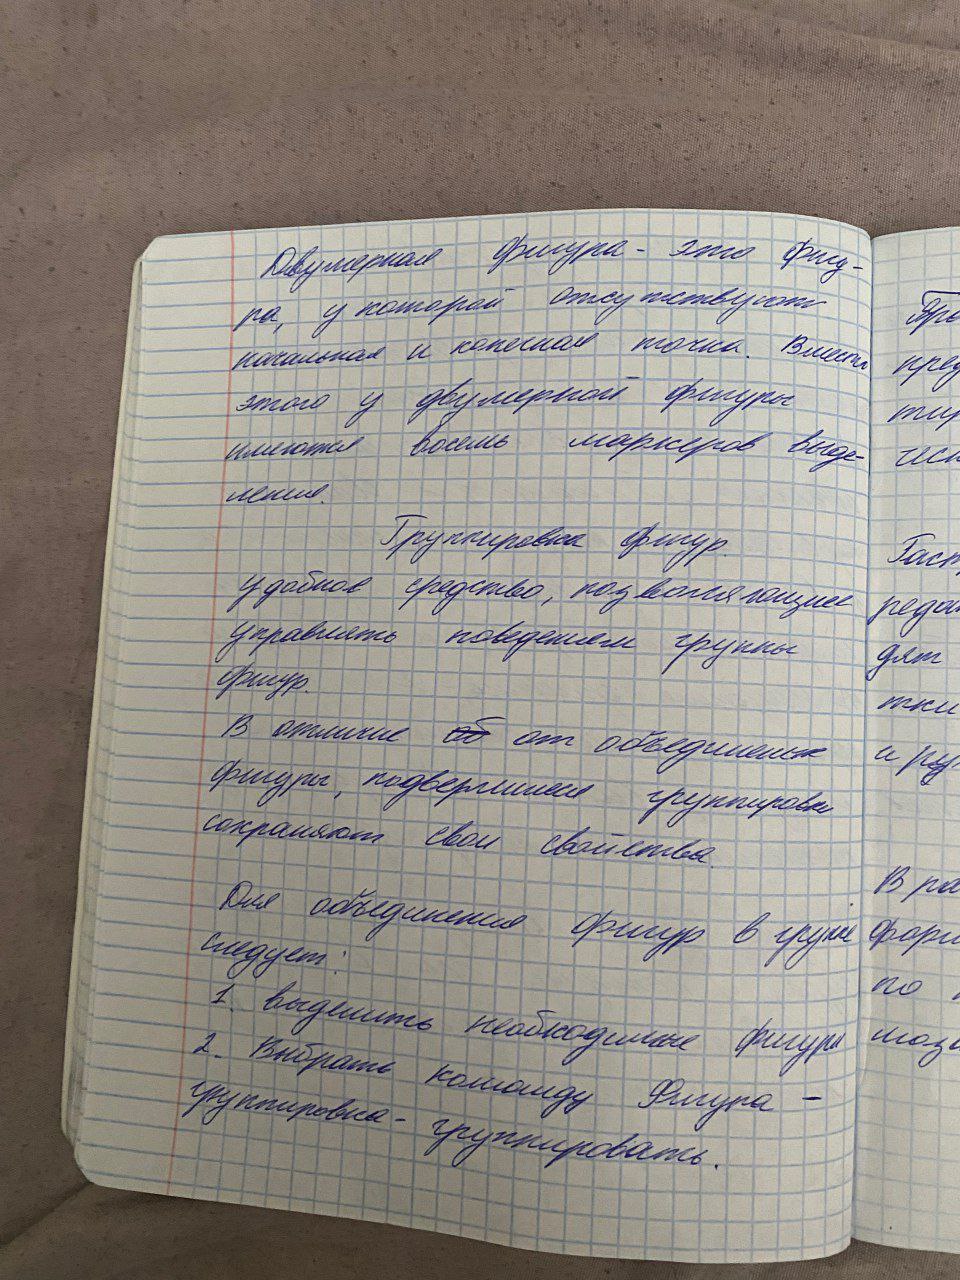 Двумерная фигура - это фигу-
ра, у которой отсутствуют
начальная и конечная точки. Вместо
этого у двумерной фигуры
имеются восемь маркеров выде-
ления.
Группировка фигур.
удобное средство, позволяющее
управлять поведением группы
фигур.
В отличие от объединения
фигуры, подвергшиеся группировке
сохраняют свои свойства.
Для объединения фигур в группе
следует:
1. Выделить необходимые фигуры
2. Выбрать команду Фигура -
группировка - группировать.
пред
тир
Гаст
редак
дят
тки
и ру
В ра
фор
по